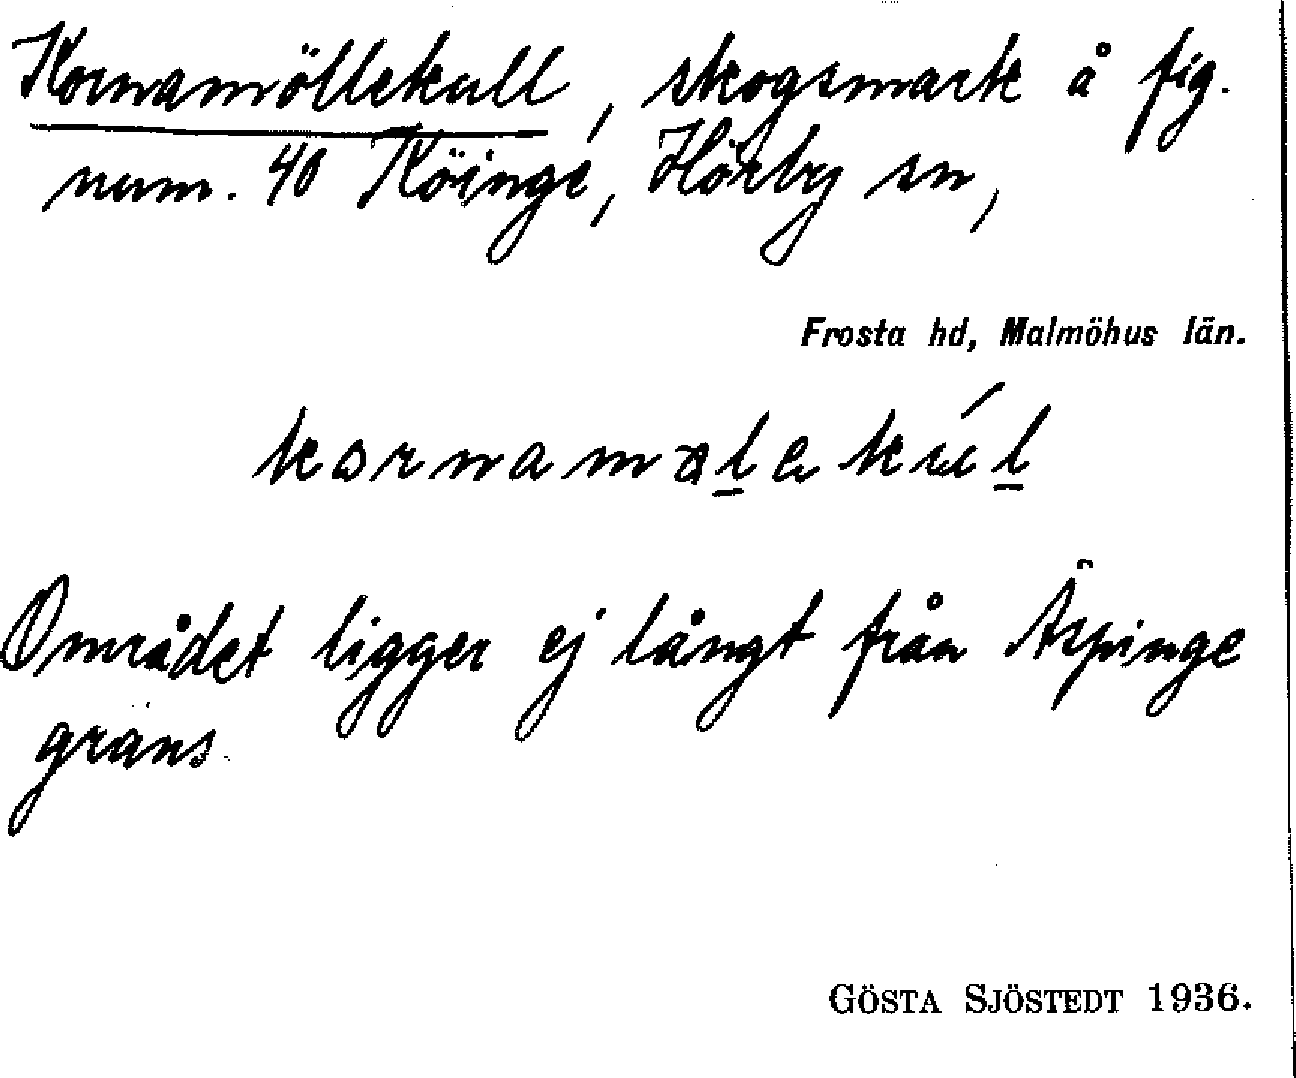 Kornamöllekull, skogsmark å fig.
num. 40 Köinge, Hörby sn,
Frosta hd, Malmöhus län.
kornamalekúl
Området ligger ej långt från Äspinge
gräns.
GÖSTA SJÖSTEDT 1936.